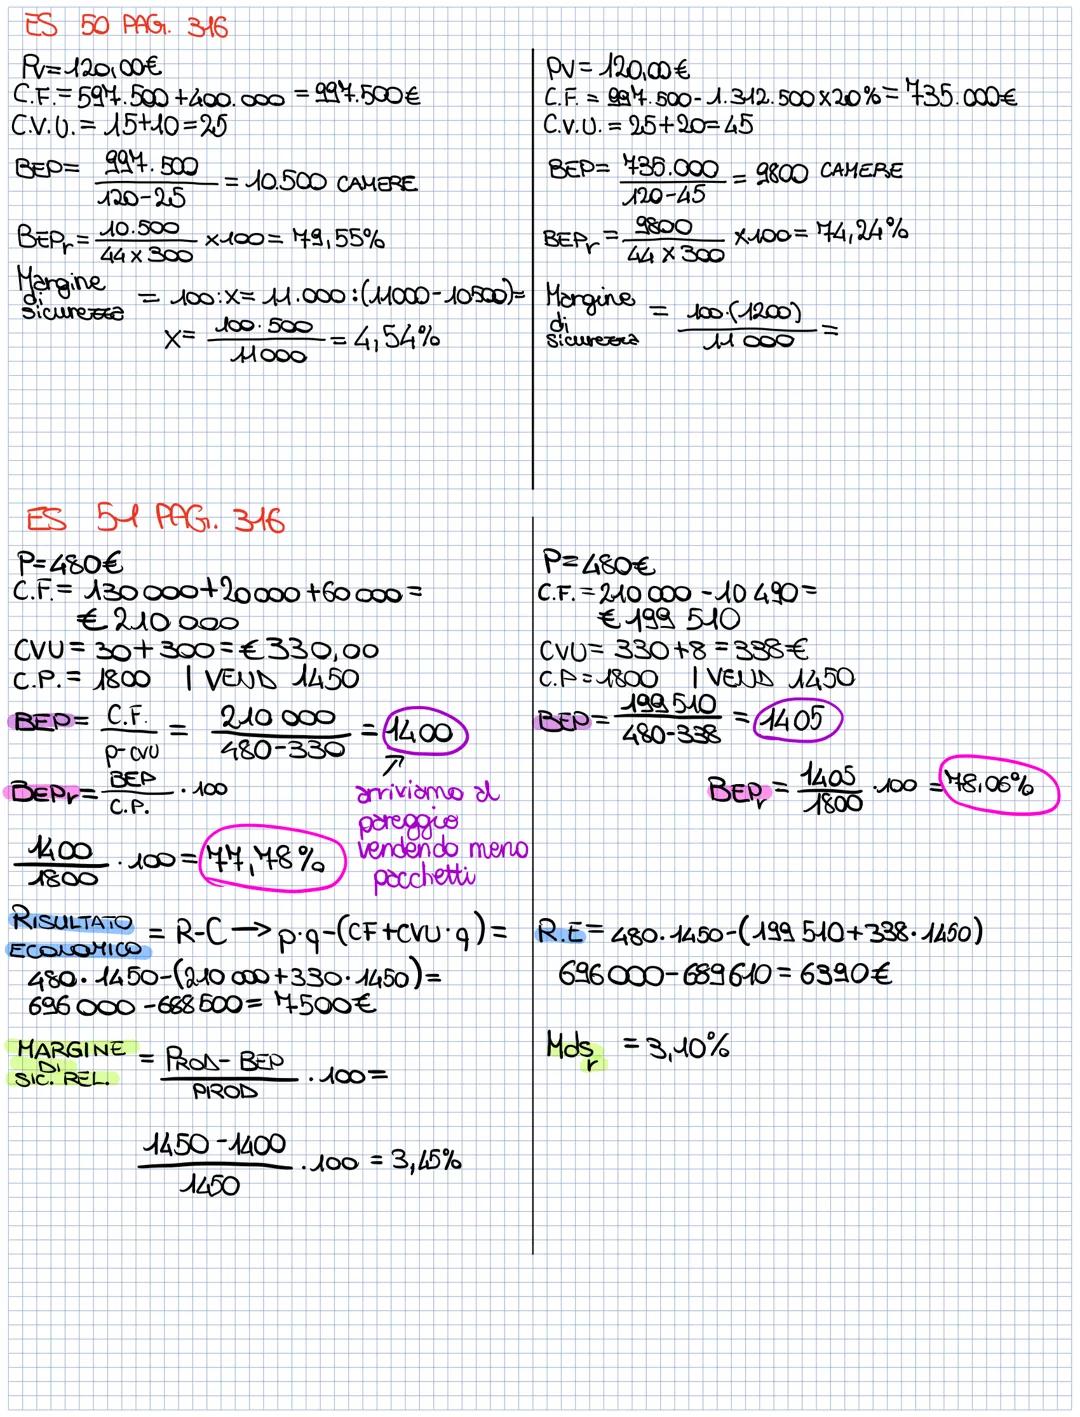 ES 50 PAG. 316
Pv=120,00€
C.F.= 597.500+400.000 = 997.500€
C.V.U.= 15+10=25
BEP= 997.500 / 120-25 = 10.500 CAMERE
BEPr= 10.500 / 44x300 x100= 79,55%
Margine di sicurezza = 100:x= 11.000:(11000-10500)=
x= 100·500 / 11000 = 4,54%
PV= 120,00€
C.F. = 997.500-1.312.500x20%= 735.000€
C.V.U. = 25+20=45
BEP= 735.000 / 120-45 = 9800 CAMERE
BEPr= 9800 / 44x300 x100= 74,24%
Margine di sicurezza = 100·(1200) / 11 000 =
ES 51 PAG. 316
P=480€
C.F.= 130 000+20000+60 000=
€ 210 000
CVU= 30+300=€330,00
C.P.= 1800 | VEND 1450
BEP= C.F. / p-cvu = 210 000 / 480-330 = 1400
arriviamo al
pareggio
vendendo meno
pacchetti
BEPr= BEP / C.P. ·100
1400 / 1800 ·100= 77,78%
RISULTATO ECONOMICO = R-C → p·q-(CF+CVU·q)=
480·1450-(210 000+330·1450)=
696 000-688500= 7500€
MARGINE DI SIC. REL. = PROD-BEP / PROD ·100=
1450-1400 / 1450 ·100 = 3,45%
P=480€
C.F.=210 000-10 490=
€ 199 510
CVU= 330+8=338€
C.P=1800 | VEND 1450
BEP= 199 510 / 480-338 = 1405
BEPr= 1405 / 1800 ·100 = 78,06%
R.E= 480·1450-(199 510+338·1450)
696000-689610= 6390€
Mdsr = 3,10%